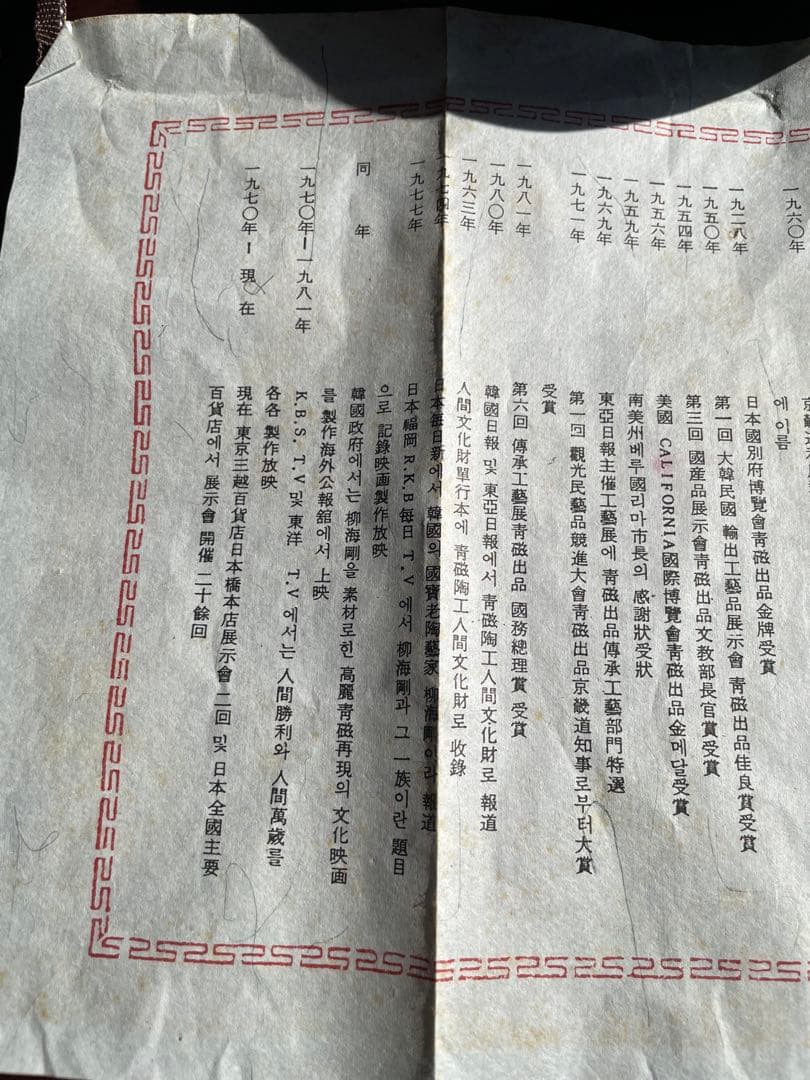 一九六〇年
에 이름
一九二八年 日本國別府博覽會靑磁出品金牌受賞
一九五〇年 第一回 大韓民國 輸出工藝品展示會 靑磁出品佳良賞受賞
一九五四年 第三回 國産品展示會靑磁出品文敎部長官賞受賞
一九五六年 美國 CALIFORNIA國際博覽會靑磁出品金메달受賞
一九五九年 南美州베루國리마市長의 感謝狀受狀
一九六九年 東亞日報主催工藝展에 靑磁出品傳承工藝部門特選
一九七一年 第一回 觀光民藝品競進大會靑磁出品京畿道知事로부터大賞
受賞
一九八一年 第六回 傳承工藝展靑磁出品 國務總理賞 受賞
一九八〇年 韓國日報 및 東亞日報에서 靑磁陶工人間文化財로 報道
一九六三年 人間文化財單行本에 靑磁陶工人間文化財로 收錄
一九七四年 日本每日新에서 韓國의 國寶老陶藝家 柳海剛이라 報道
一九七七年 日本福岡 R.K.B每日 T.V 에서 柳海剛과 그 一族이란 題目
으로 記錄映画製作放映
同 年 韓國政府에서는 柳海剛을 素材로한 高麗靑磁再現의 文化映画
를 製作海外公報舘에서 上映
一九七〇年ー一九八一年 K.B.S. T.V 및 東洋 T.V 에서는 人間勝利와 人間萬歲를
各各 製作放映
一九七〇年ー現 在 現在 東京三越百貨店日本橋本店展示會 二回 및 日本全國主要
百貨店에서 展示會 開催 二十餘回